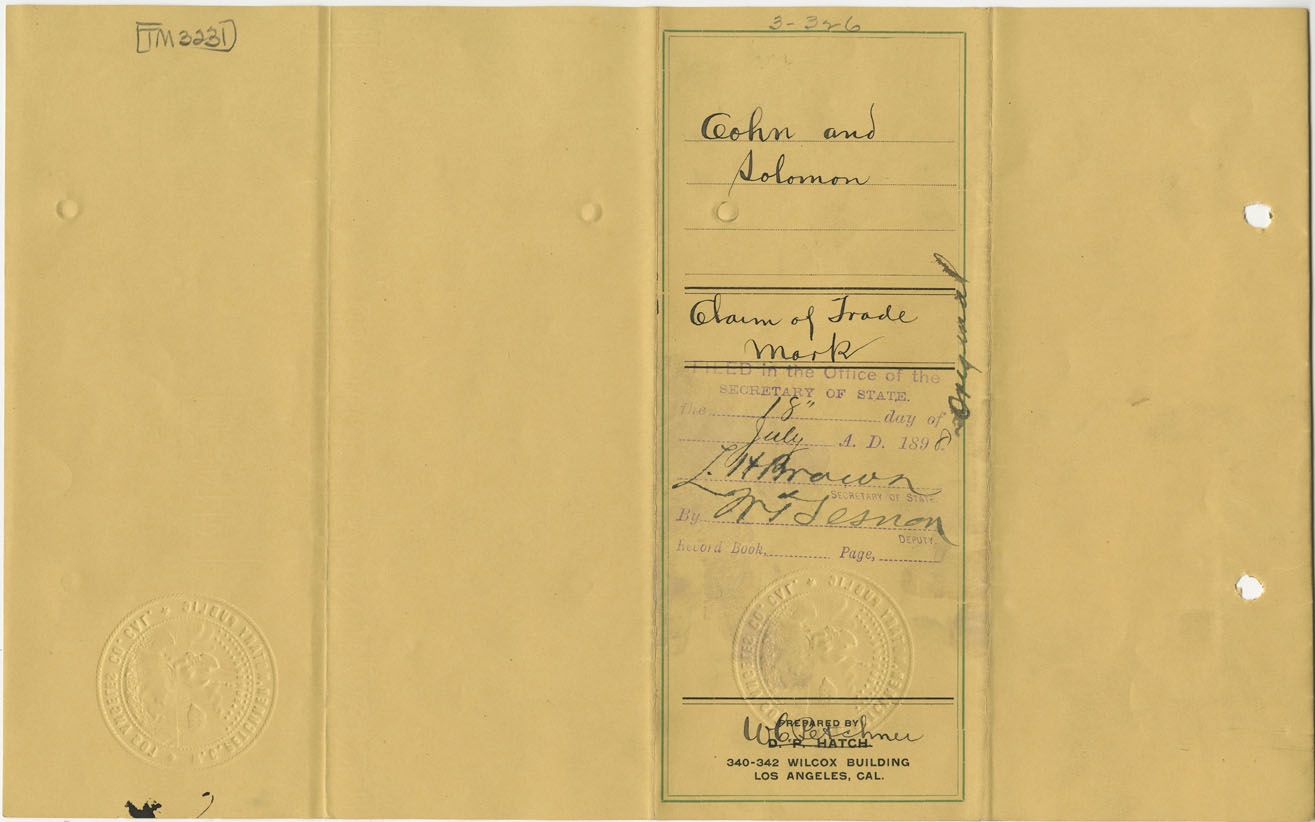 TM 3231
3-326
Cohn and
Solomon
Claim of Trade
Mark
Original
FILED in the Office of the
SECRETARY OF STATE.
the 18" day of
July A. D. 1898
L. H. Brown
SECRETARY OF STATE
By
DEPUTY.
Record Book, Page,
PREPARED BY
W. C. Petchner
D. P. HATCH
340-342 WILCOX BUILDING
LOS ANGELES, CAL.